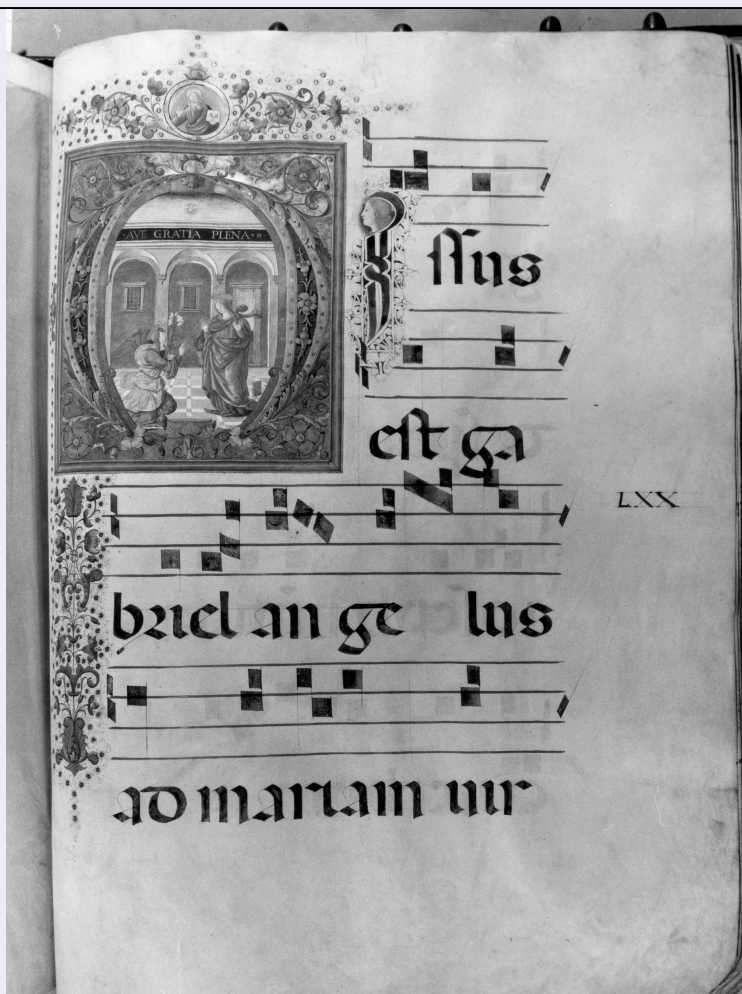 AVE GRATIA PLENA
M
ıssus
est ga
LXX
briel an ge lus
ad mariam uir